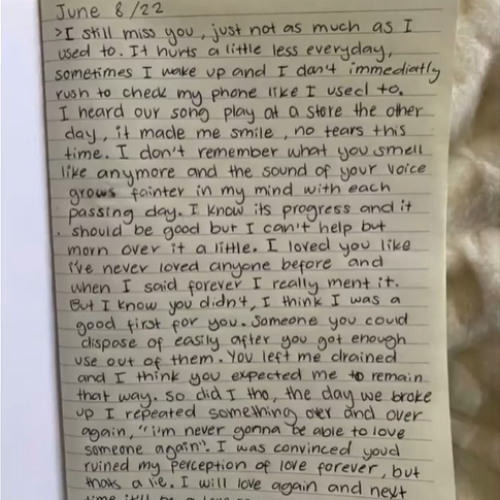 June 8/22
>I still miss you, just not as much as I
used to. It hurts a little less everyday,
sometimes I wake up and I don't immediatly
rush to check my phone like I used to.
I heard our song play at a store the other
day, it made me smile, no tears this
time. I don't remember what you smell
like anymore and the sound of your voice
grows fainter in my mind with each
passing day. I know its progress and it
should be good but I can't help but
morn over it a little. I loved you like
i've never loved anyone before and
when I said forever I really ment it.
But I know you didn't, I think I was a
good first for you. Someone you could
dispose of easily after you got enough
use out of them. You left me drained
and I think you expected me to remain
that way. So did I tho, the day we broke
up I repeated something over and over
again, "i'm never gonna be able to love
someone again". I was convinced youd
ruined my perception of love forever, but
thats a lie. I will love again and next
time